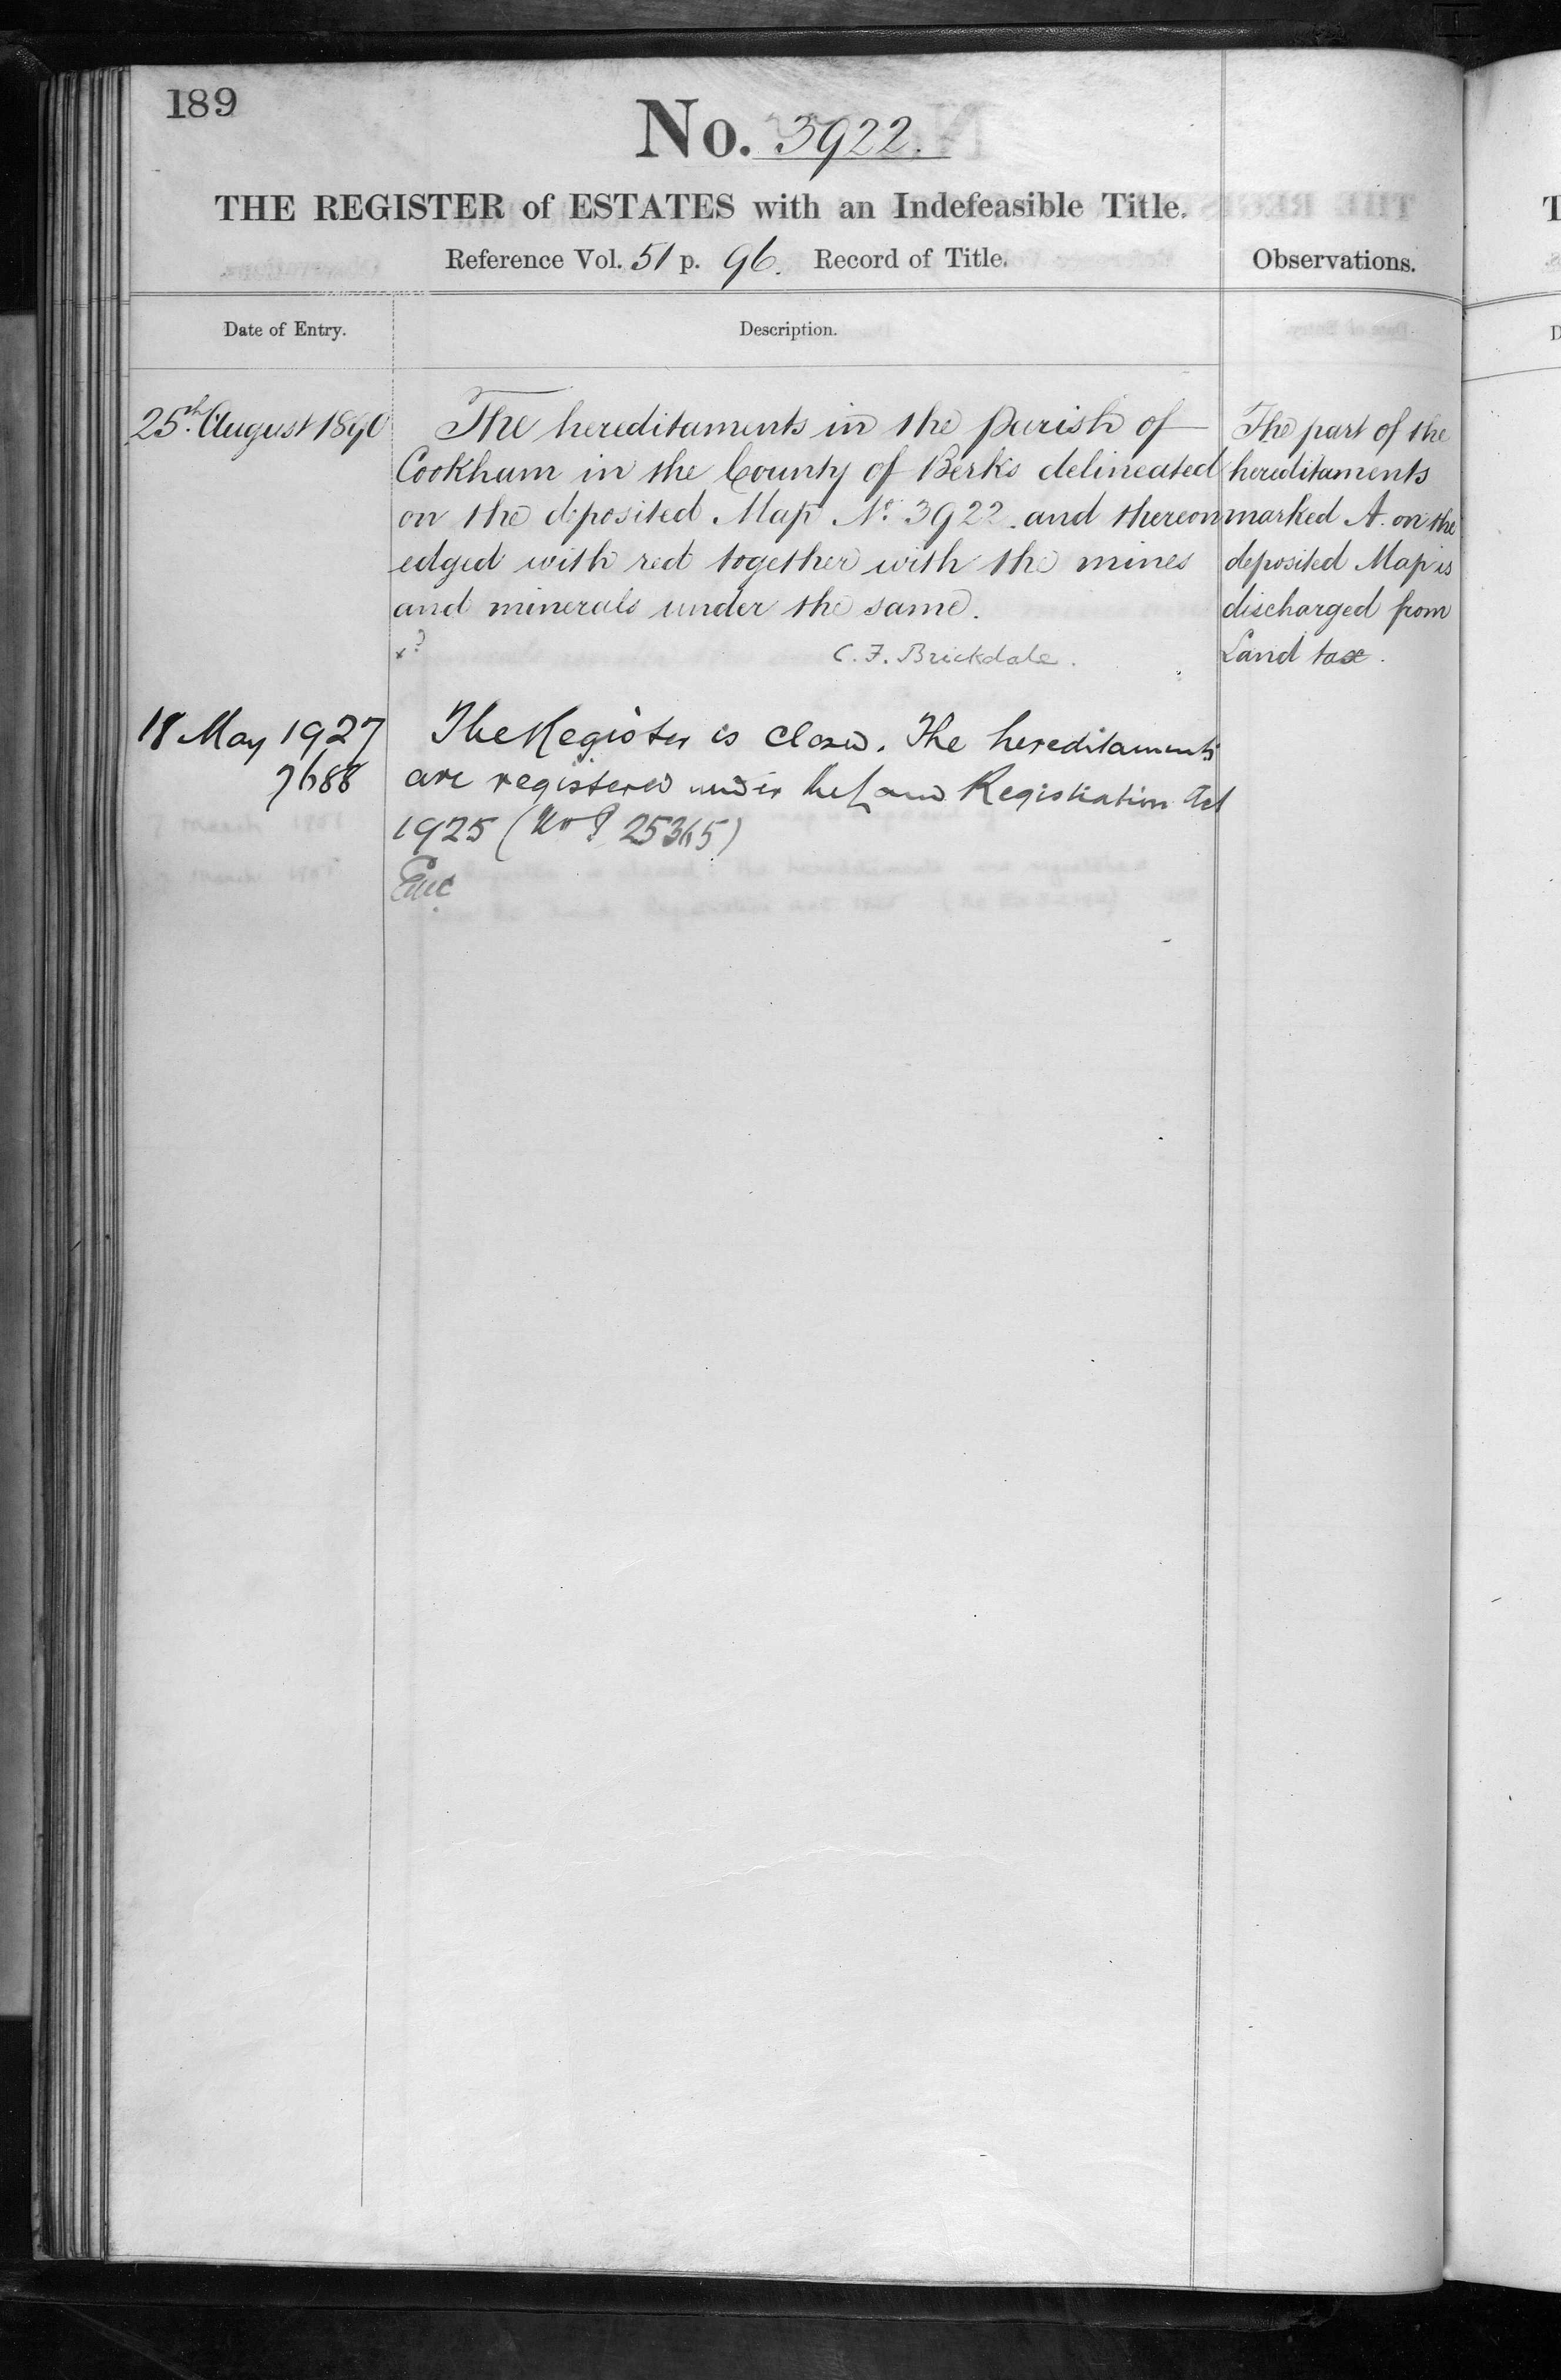 189
No. 3922.
THE REGISTER of ESTATES with an Indefeasible Title.
Reference Vol. 51 p. 96. Record of Title.
Observations.
Date of Entry.
Description.
25th August 1890
The hereditaments in the parish of
Cookham in the County of Berks delineated
on the deposited Map No. 3922 and thereon
edged with red together with the mines
and minerals under the same.
C. F. Brickdale.
The part of the
hereditaments
marked A. on the
deposited Map is
discharged from
Land tax.
18 May 1927
7688
The Register is closed. The hereditaments
are registered under the Land Registration Act
1925 (No P 25365)